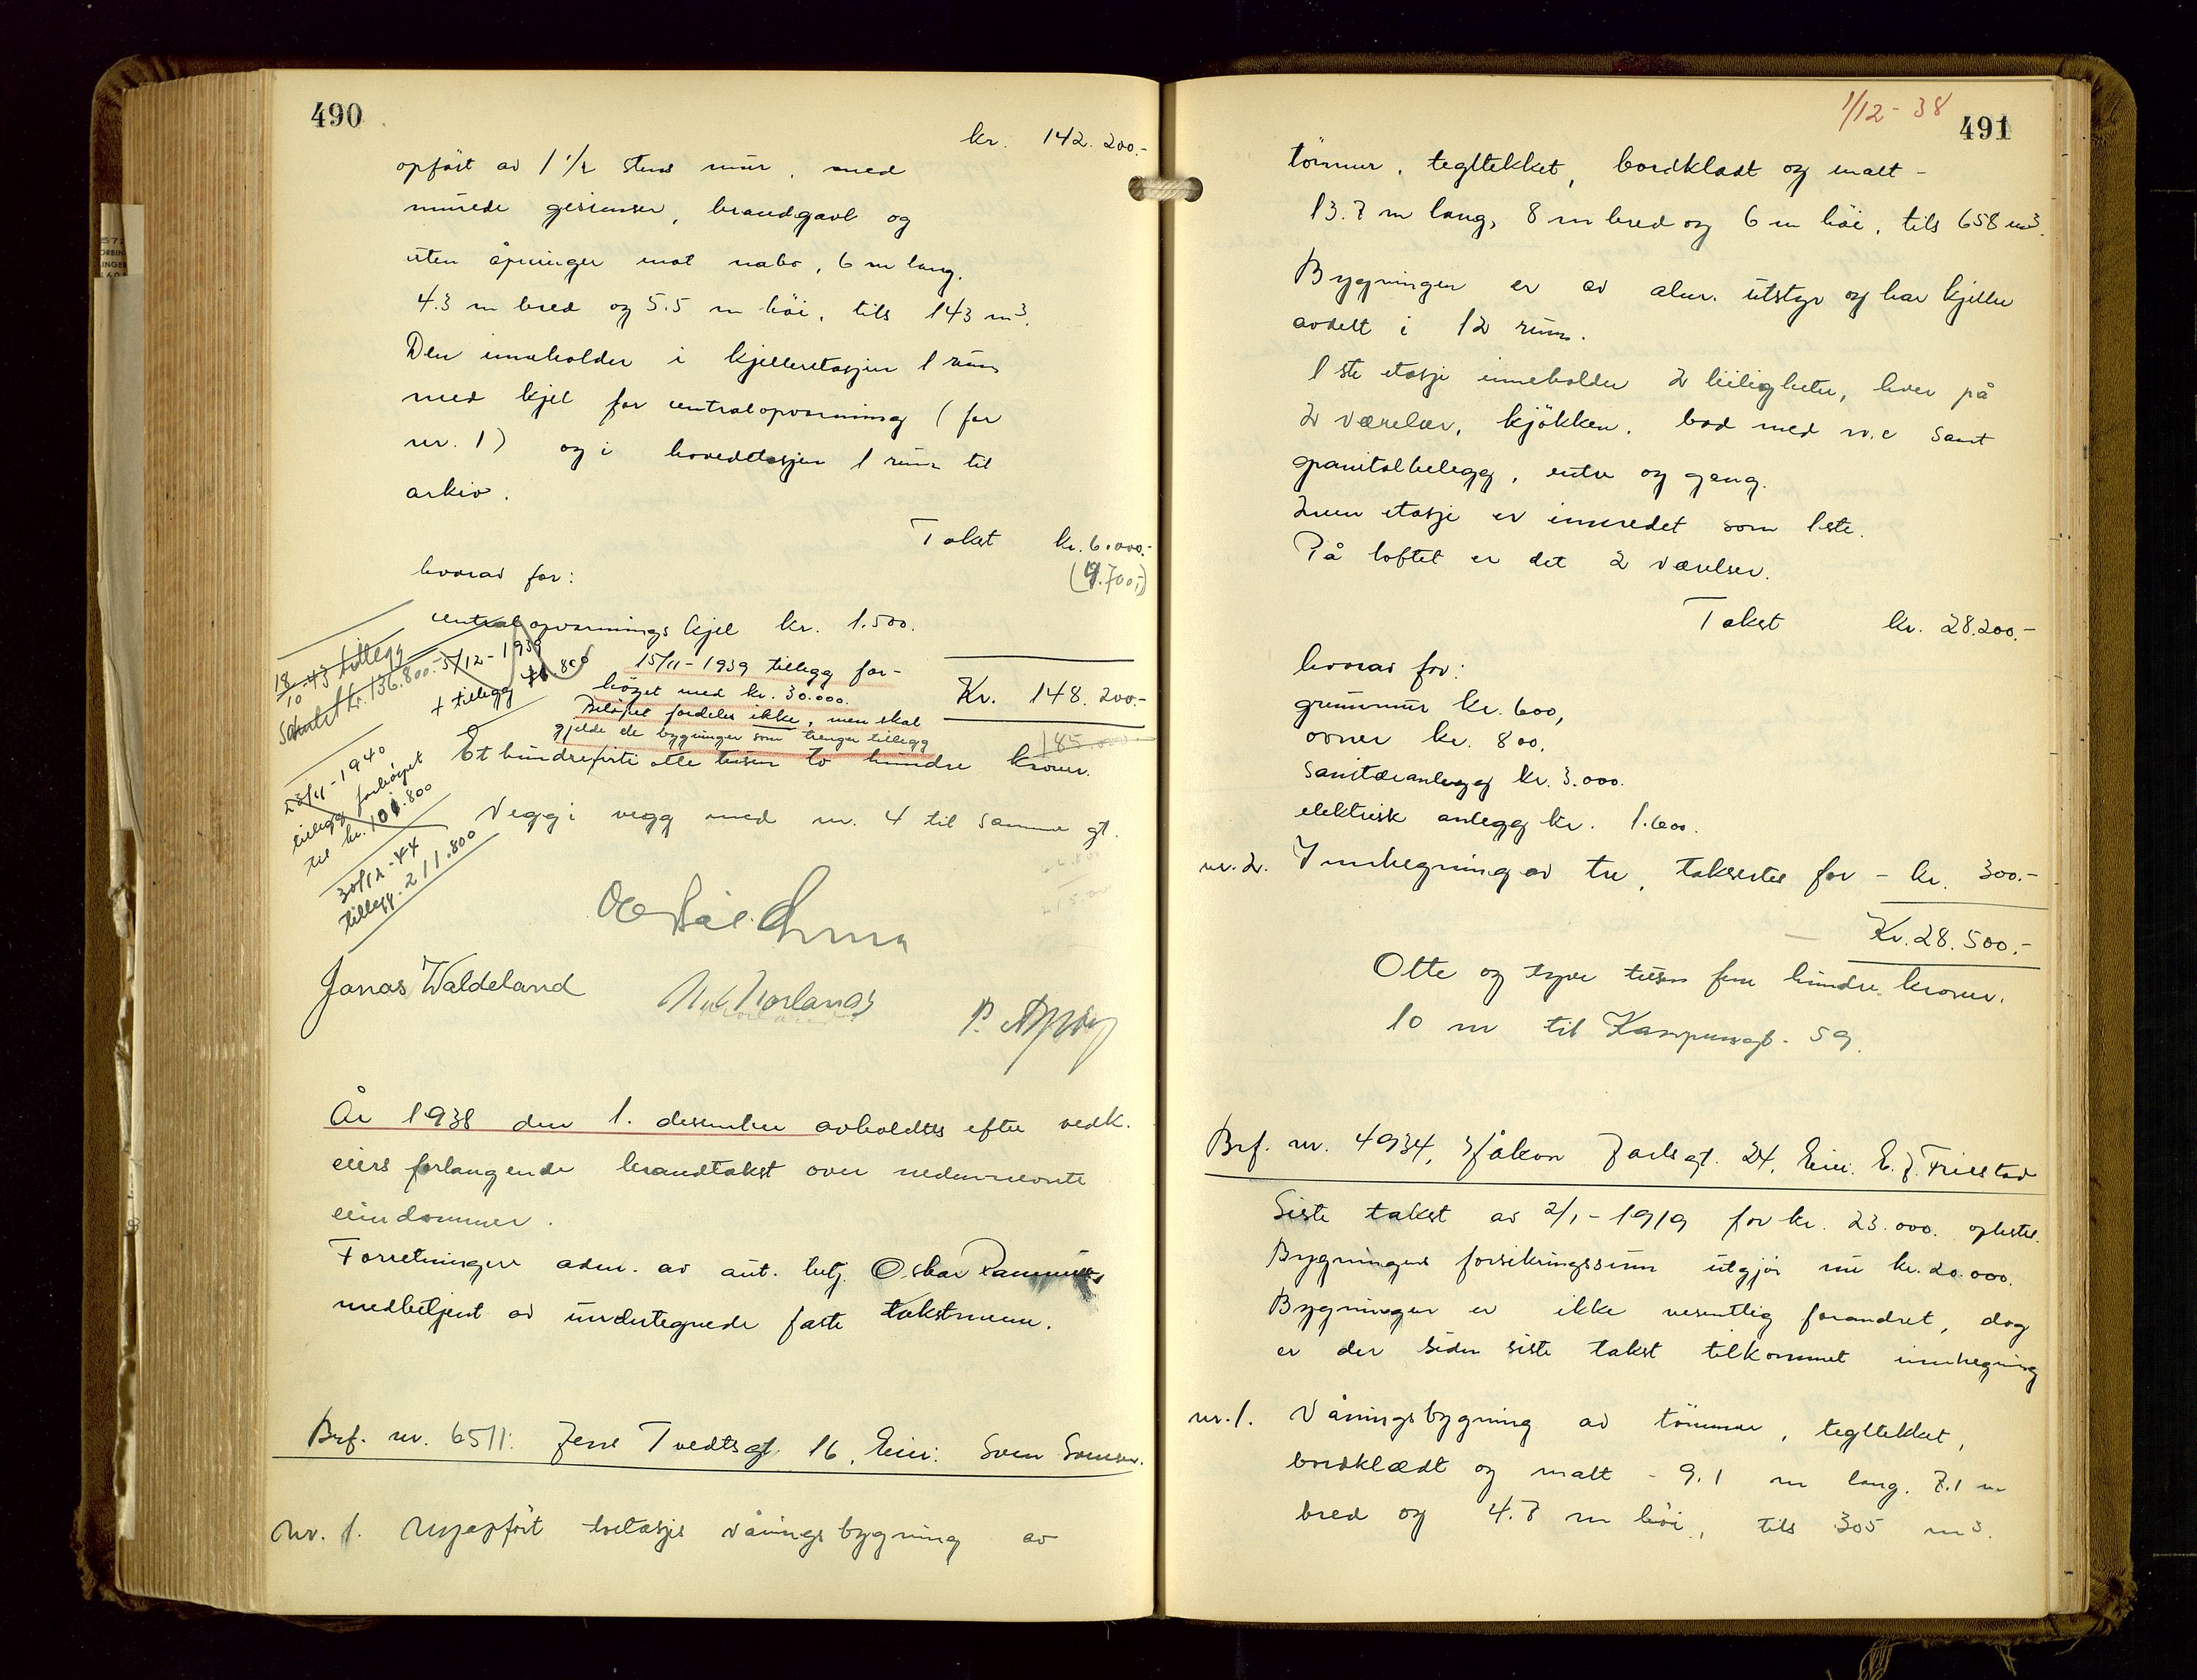 490
kr. 142.200.-
opført av 1 1/2 stens mur, med
murede gesimser, brandgavl og
uten åpninger mot nabo, 6 m lang,
4.3 m bred og 5.5 m höi, tils 143 m3.
Den inneholder i kjelleretasjen 1 rum
med kjel for centralopvarming (for
nr. 1) og i hovedetasjen 1 rum til
arkiv.
Takst kr. 6.000.-
(9.700,-)
hvorav for:
centralopvarmings kjel kr. 1.500.
18/10 43 tillegg
Samlet kr. 136.800.-
5/12-1939
+ tillegg
15/11-1939 tillegg for-
höyet med kr. 30.000.
Beløpet fordeles ikke, men skal
gjelde de bygninger som trenger tillegg
Kr. 148.200.-
185.000
Et hundreførti otte tusen to hundre kroner.
28/11-1940
tillegg forhöyet
til kr. 101.800
30/12-44
tillegg. 211.800
Vegg i vegg med nr. 4 til samme gt.
Jonas Waldeland
År 1938 den 1. desember avholdtes efter vedk.
eiers forlangende brandtakst over nedennevnte
eiendommer.
Forretningen adm. av aut. betj. Oskar
medbetjent av undertegnede faste takstmenn.
Brf. nr. 6511. Jens Tvedtsgt. 16, Eier: Sven Svensen.
Nr. 1. Nyopført toetasjes våningsbygning av
1/12-38
491
tömmer, tegltekket, bordklædt og malt -
13.7 m lang, 8 m bred og 6 m höi, tils 658 m3.
Bygningen er av alm. utstyr og har kjeller
avdelt i 12 rum.
1ste etasje inneholder 2 leiligheter, hver på
2 værelser, kjökken, bad med w.c samt
granitolbelegg, entre og gang.
2nen etasje er innredet som 1ste.
På loftet er det 2 værelser.
Takst kr. 28.200.-
hvorav for:
grunnmur kr. 600,
ovner kr. 800.
sanitæranlegg kr. 3.000.
elektrisk anlegg kr. 1.600.
nr. 2. Innhegning av tre, takseres for - kr. 300.-
Kr. 28.500.-
Otte og tyve tusen fem hundre kroner.
10 m til Kampensgt. 59.
Brf. nr. 4934, Håkon Jarlsgt. 24, Eier: E. J. Friestad
Siste takst av 2/1-1919 for kr. 23.000. oplestes.
Bygningens forsikringssum utgjör nu kr. 20.000.
Bygningen er ikke vesentlig forandret, dog
er der siden siste takst tilkommet innhegning
nr. 1. Våningsbygning av tömmer, tegltekket,
bordklædt og malt - 9.1 m lang, 7.1 m
bred og 4.7 m höi, tils 305 m3.